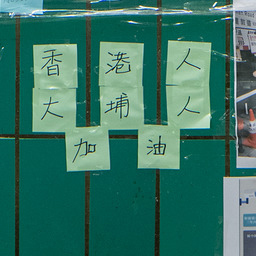 香港人
大埔人
加油